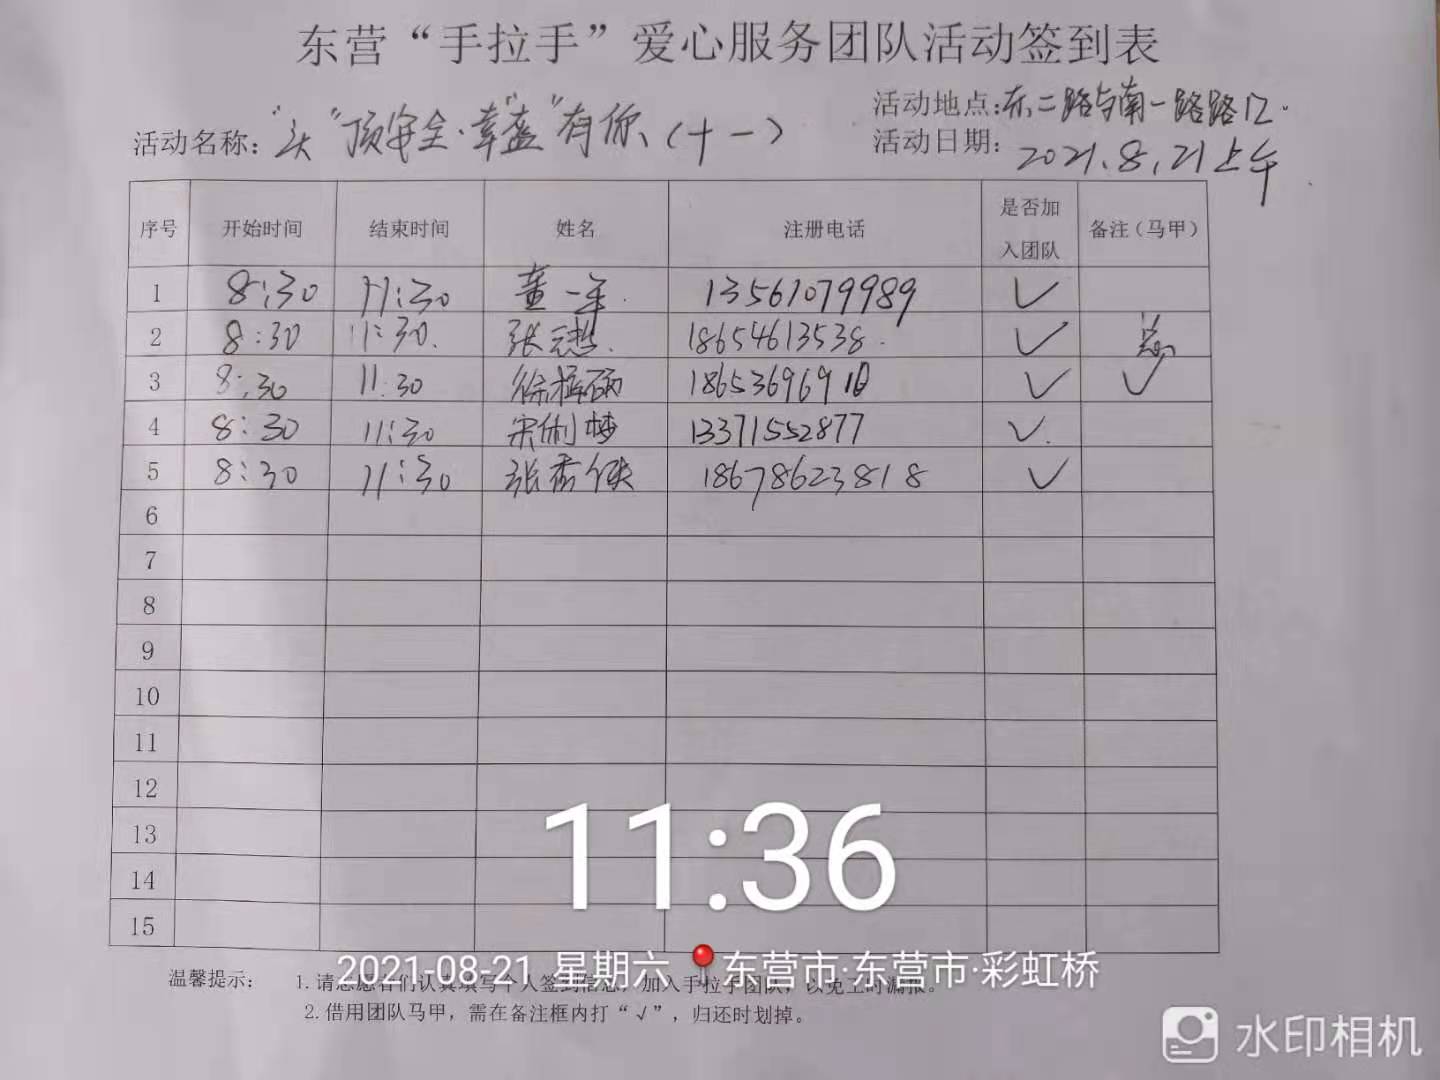 东营“手拉手”爱心服务团队活动签到表
活动地点:东二路与南一路路口。
活动名称:“头”顶安全·幸“盔”有你(十一)
活动日期: 2021.8.21上午
序号 开始时间 结束时间 姓名 注册电话 是否加入团队 备注(马甲)
1 8:30 11:30 董一 13561079989 ✓
2 8:30 11:30. 张 18654613538. ✓
3 8:30 11:30 徐 186536969 ✓ ✓
4 8:30 11:30 宋俐梦 13371552877 ✓.
5 8:30 11:30 张秀 18678623818 ✓
6
7
8
9
10
11
12
13
14
15
11:36
2021-08-21 星期六 东营市·东营市·彩虹桥
温馨提示: 1.请志愿者们认真填写个人签到信息,加入手拉手团队,以免工时漏报。
2.借用团队马甲,需在备注框内打“√”,归还时划掉。
水印相机